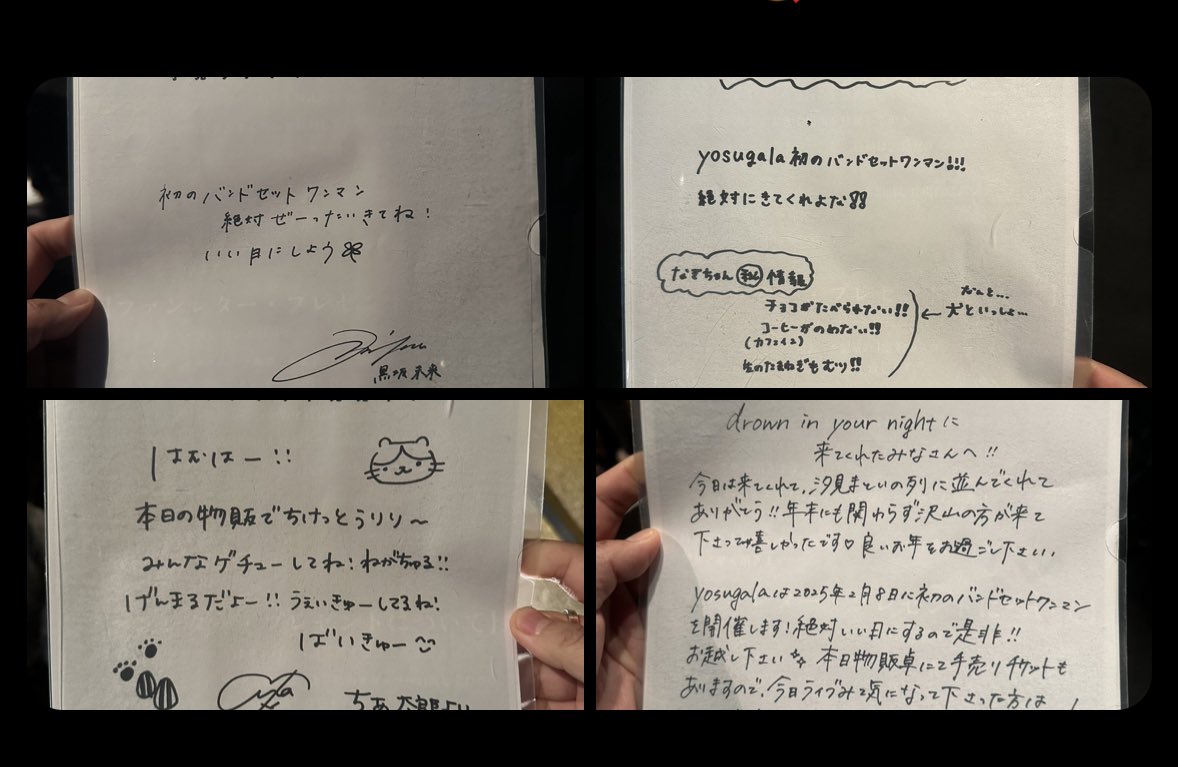 初のバンドセット ワンマン
絶対ぜーったいきてね!
いい日にしよう
黒坂未来
yosugala 初のバンドセットワンマン!!!
絶対にきてくれよな!!
なぎちゃん ㊙ 情報
チョコがたべられない!!
コーヒーがのめない!!
(カフェイン)
生のたまねぎもむり!!
← なんと…
犬といっしょ…
はむはー!!
本日の物販でちけっとうりり〜
みんなゲチューしてね!ねがちゅる!!
げんまるだよー!!うぇいきゅーしてるね!
ばいきゅー
ちあ太郎より
drown in your nightに
来てくれたみなさんへ!!
今日は来てくれて、汐見まといの列に並んでくれて
ありがとう!!年末にも関わらず沢山の方が来て
下さって嬉しかったです♡良いお年をお過ごし下さい。
yosugalaは2025年2月8日に初のバンドセットワンマン
を開催します!絶対いい日にするので是非!!
お越し下さい 本日物販卓にて手売りチケットも
ありますので、今日ライブみて気になって下さった方は